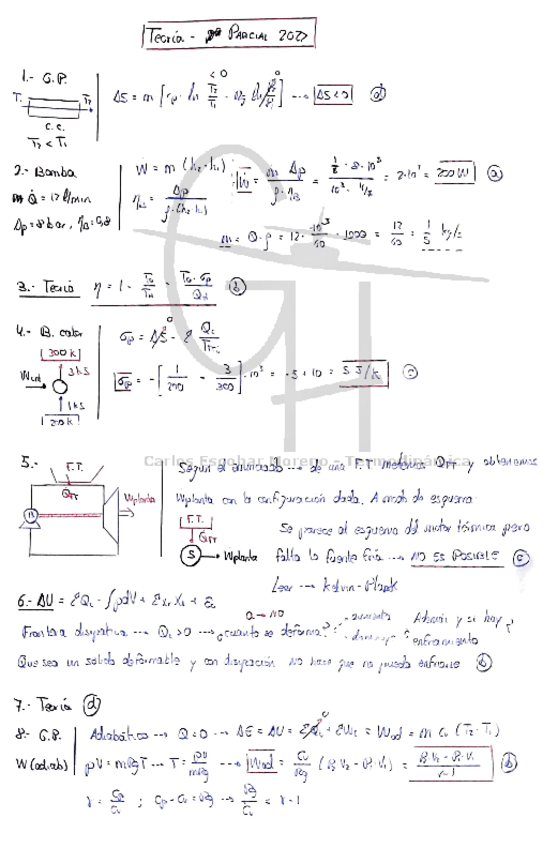 Teoría - PARCIAL 2022
1.- G.P.
T₁
T₂
C.C.
T₂ < T₁
ΔS = m [cp · ln T₂/T₁ - Rg ln P₂/P₁] → ΔS<0 (d)
<0
0
2.- Bomba
Q̇ = 12 l/min
Δp = 8 bar, ηB = 0,8
Ẇ = m (h₂-h₁)
ηB = Δp / ρ·(h₂-h₁)
Ẇ = ṁ Δp / ρ · ηB = = 200 W (a)
ṁ = Q·ρ = 12 · 10⁻³/60 · 1000 = 12/60 = 1/5 kg/s
3.- Teoría η = 1 - T₀/TH - T₀·σp/Qd (b)
4.- B. calor
300 K
3 kJ
Wint
1 kJ
200 K
σp = ΔS - Σ Qi/TFTi
0
σp = -[1/200 - 3/300] · 10³ = -5 + 10 = 5 J/K (c)
5.-
F.T.
QFT
B
Wplanta
Carlos Escobar Moreno - Termodinámica
Según el enunciado → de una F.T. metemos QFT y obtenemos
Wplanta con la configuración dada. A modo de esquema:
F.T.
QFT
S → Wplanta
Se parece al esquema del motor térmico pero
falta la fuente fría → NO ES POSIBLE (c)
Leer → Kelvin-Planck
6.- ΔU = ΣQi - ∫pdV + ΣXi Xi +
a → NO
Frontera disipativa → Qi > 0 → ¿cuanto se deforma? aumenta
Adición y si hay
enfriamiento?
Que sea un sólido deformable y con disipación no hace que no pueda enfriarse (b)
7.- Teoría (d)
8.- G.P.
W (adiab)
Adiabático → Q = 0 → ΔE = ΔU = ΣQi + ΣWi = Wad = m Cv (T₂ - T₁)
0
pV = mRgT → T = pV/mRg → Wad = Cv/Rg (P₂V₂ - P₁V₁) = P₂V₂ - P₁V₁ / γ-1 (b)
γ = Cp/Cv ; Cp - Cv = Rg → Rg/Cv = γ - 1